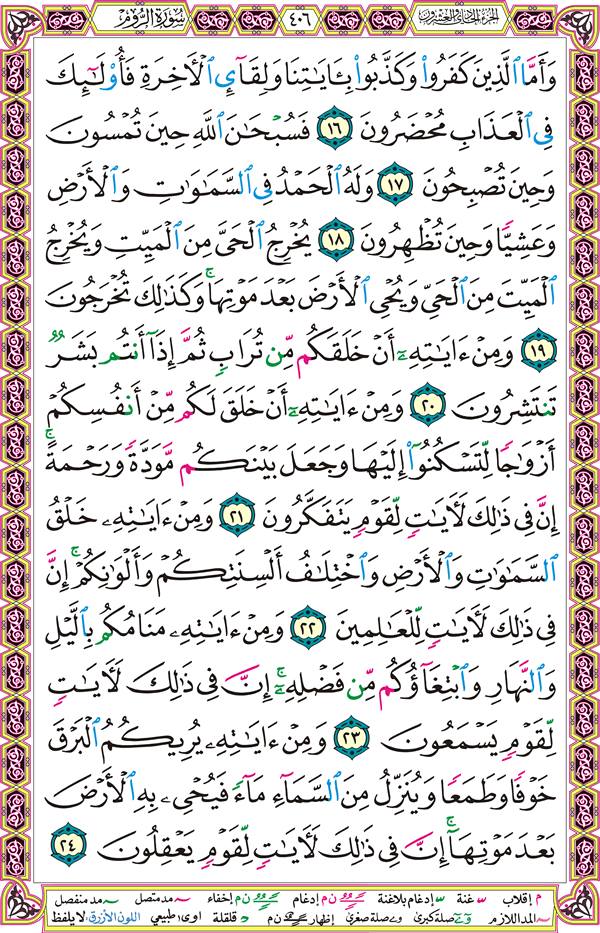 الجزء الحادي والعشرون ٤٠٦ سُورَةُ الرُّومِ
وَأَمَّا ٱلَّذِينَ كَفَرُوا۟ وَكَذَّبُوا۟ بِـَٔايَـٰتِنَا وَلِقَآئِ ٱلْـَٔاخِرَةِ فَأُو۟لَـٰٓئِكَ
فِى ٱلْعَذَابِ مُحْضَرُونَ ١٦ فَسُبْحَـٰنَ ٱللَّهِ حِينَ تُمْسُونَ
وَحِينَ تُصْبِحُونَ ١٧ وَلَهُ ٱلْحَمْدُ فِى ٱلسَّمَـٰوَٰتِ وَٱلْأَرْضِ
وَعَشِيًّا وَحِينَ تُظْهِرُونَ ١٨ يُخْرِجُ ٱلْحَىَّ مِنَ ٱلْمَيِّتِ وَيُخْرِجُ
ٱلْمَيِّتَ مِنَ ٱلْحَىِّ وَيُحْىِ ٱلْأَرْضَ بَعْدَ مَوْتِهَا ۚ وَكَذَٰلِكَ تُخْرَجُونَ
١٩ وَمِنْ ءَايَـٰتِهِۦٓ أَنْ خَلَقَكُم مِّن تُرَابٍ ثُمَّ إِذَآ أَنتُم بَشَرٌ
تَنتَشِرُونَ ٢٠ وَمِنْ ءَايَـٰتِهِۦٓ أَنْ خَلَقَ لَكُم مِّنْ أَنفُسِكُمْ
أَزْوَٰجًا لِّتَسْكُنُوٓا۟ إِلَيْهَا وَجَعَلَ بَيْنَكُم مَّوَدَّةً وَرَحْمَةً ۚ
إِنَّ فِى ذَٰلِكَ لَـَٔايَـٰتٍ لِّقَوْمٍ يَتَفَكَّرُونَ ٢١ وَمِنْ ءَايَـٰتِهِۦ خَلْقُ
ٱلسَّمَـٰوَٰتِ وَٱلْأَرْضِ وَٱخْتِلَـٰفُ أَلْسِنَتِكُمْ وَأَلْوَٰنِكُمْ ۚ إِنَّ
فِى ذَٰلِكَ لَـَٔايَـٰتٍ لِّلْعَـٰلِمِينَ ٢٢ وَمِنْ ءَايَـٰتِهِۦ مَنَامُكُم بِٱلَّيْلِ
وَٱلنَّهَارِ وَٱبْتِغَآؤُكُم مِّن فَضْلِهِۦٓ ۚ إِنَّ فِى ذَٰلِكَ لَـَٔايَـٰتٍ
لِّقَوْمٍ يَسْمَعُونَ ٢٣ وَمِنْ ءَايَـٰتِهِۦ يُرِيكُمُ ٱلْبَرْقَ
خَوْفًا وَطَمَعًا وَيُنَزِّلُ مِنَ ٱلسَّمَآءِ مَآءً فَيُحْىِۦ بِهِ ٱلْأَرْضَ
بَعْدَ مَوْتِهَآ ۚ إِنَّ فِى ذَٰلِكَ لَـَٔايَـٰتٍ لِّقَوْمٍ يَعْقِلُونَ ٢٤
م إقلاب غنة إدغام بلاغنة ن م إدغام ن م إخفاء مد متصل مد منفصل
المد اللازم صلة كبرى صلة صغرى إظهار ن م قلقلة اوى طبيعي اللون الأزرق لا يلفظ